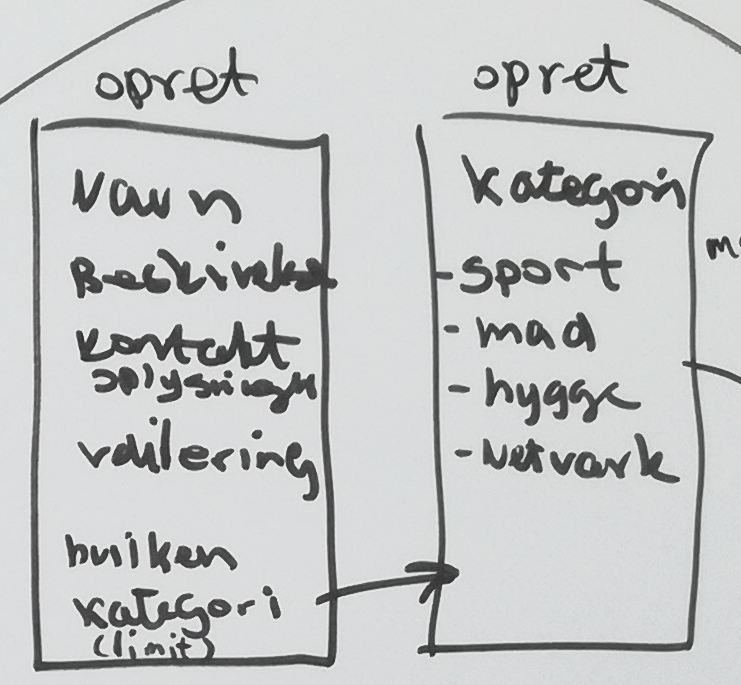 opret
Navn
Beskrivelse
Kontakt
oplysninger
hvilken
kategori
(limit)
opret
Kategori
- sport
- mad
- hygge
- Netværk